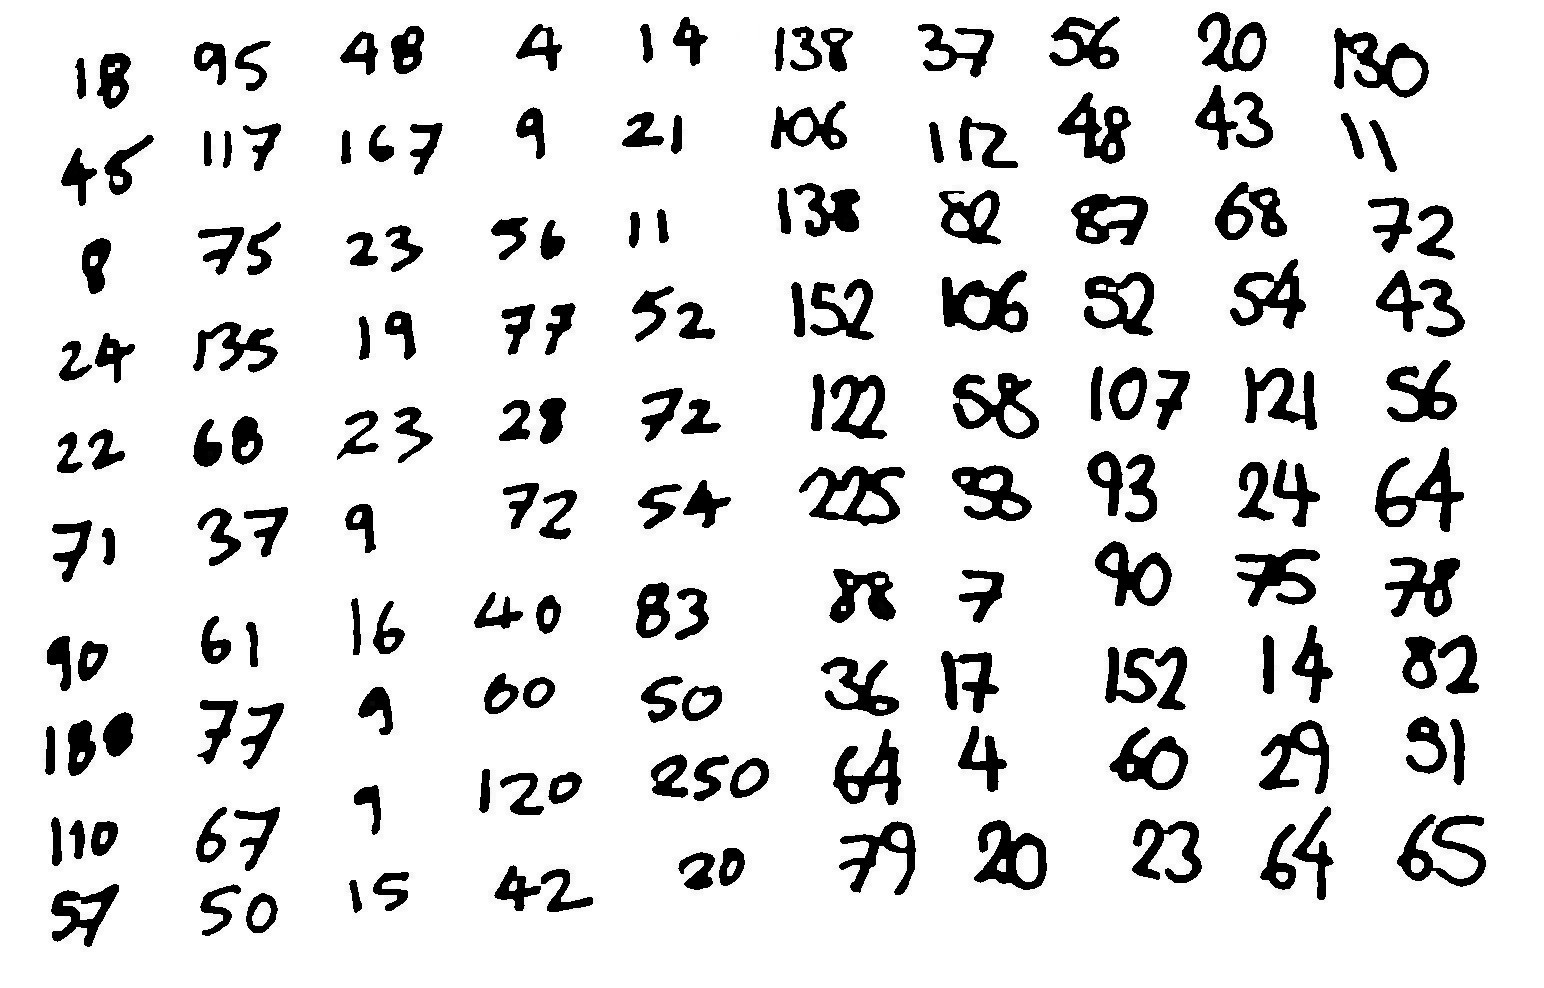 18 95 48 4 14 138 37 56 20 130
45 117 167 9 21 106 112 48 43 11
8 75 23 56 11 138 82 87 68 72
24 135 19 77 52 152 106 52 54 43
22 68 23 28 72 122 58 107 121 56
71 37 9 72 54 225 38 93 24 64
90 61 16 40 83 88 7 90 75 78
188 77 9 60 50 36 17 152 14 82
110 67 9 120 250 64 4 60 29 91
57 50 15 42 20 79 20 23 64 65